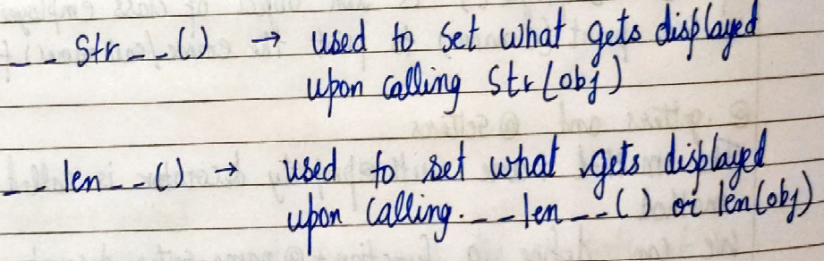 __str__() → used to set what gets displayed
upon calling str(obj)
__len__() → used to set what gets displayed
upon calling .__len__() or len(obj)